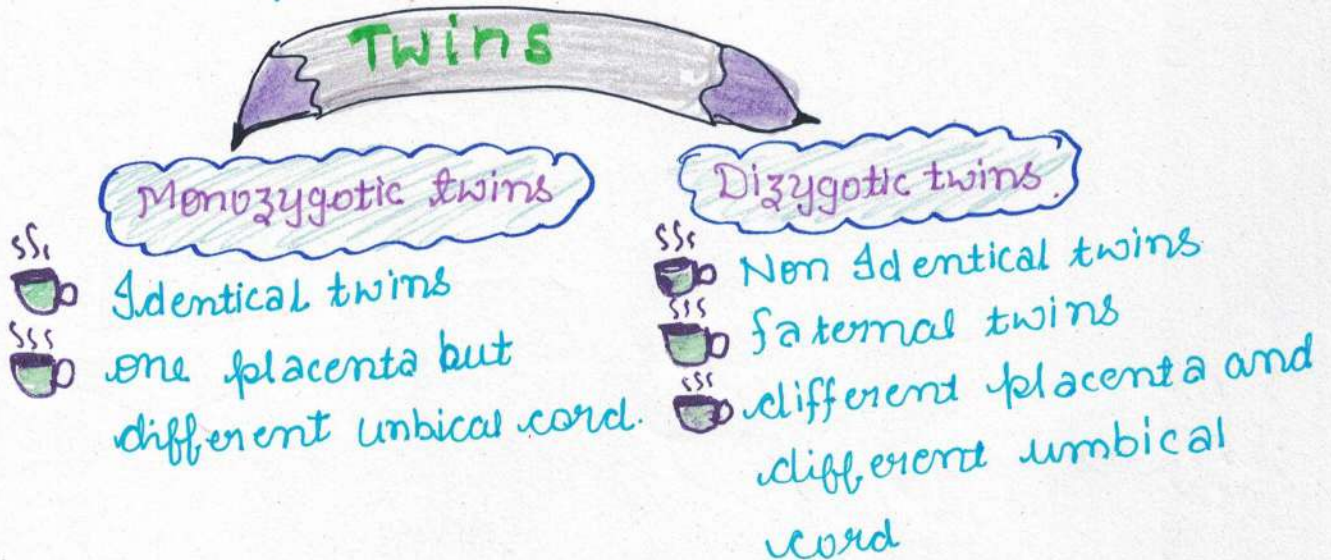 Twins
Monozygotic twins
Identical twins
one placenta but
different unbical cord.
Dizygotic twins.
Non Identical twins
faternal twins
different placenta and
different umbical
cord